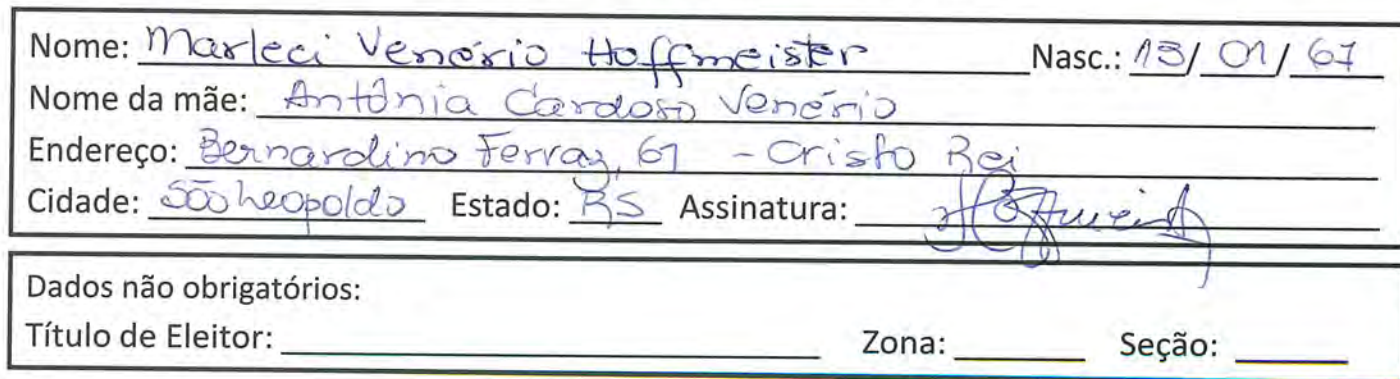 Nome: Marleci Venério Hoffmeister Nasc.: 13/01/67
Nome da mãe: Antônia Cardoso Venério
Endereço: Bernardino Ferraz, 61 - Cristo Rei
Cidade: São Leopoldo Estado: RS Assinatura:
Dados não obrigatórios:
Título de Eleitor: Zona: Seção: